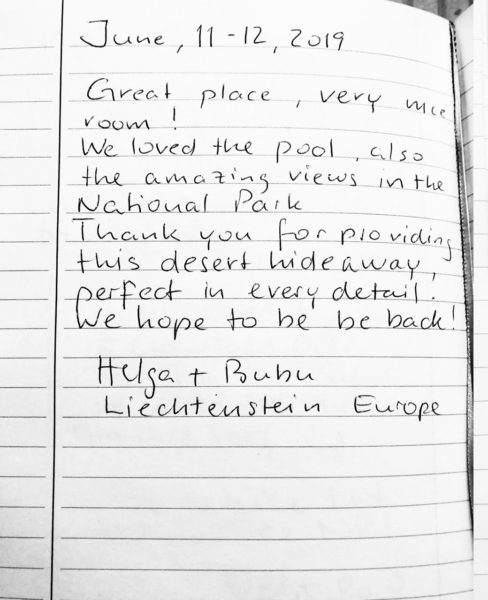 June, 11-12, 2019
Great place, very nice
room!
We loved the pool, also
the amazing views in the
National Park
Thank you for providing
this desert hideaway,
perfect in every detail.
We hope to be be back!
Helga + Bubu
Liechtenstein Europe